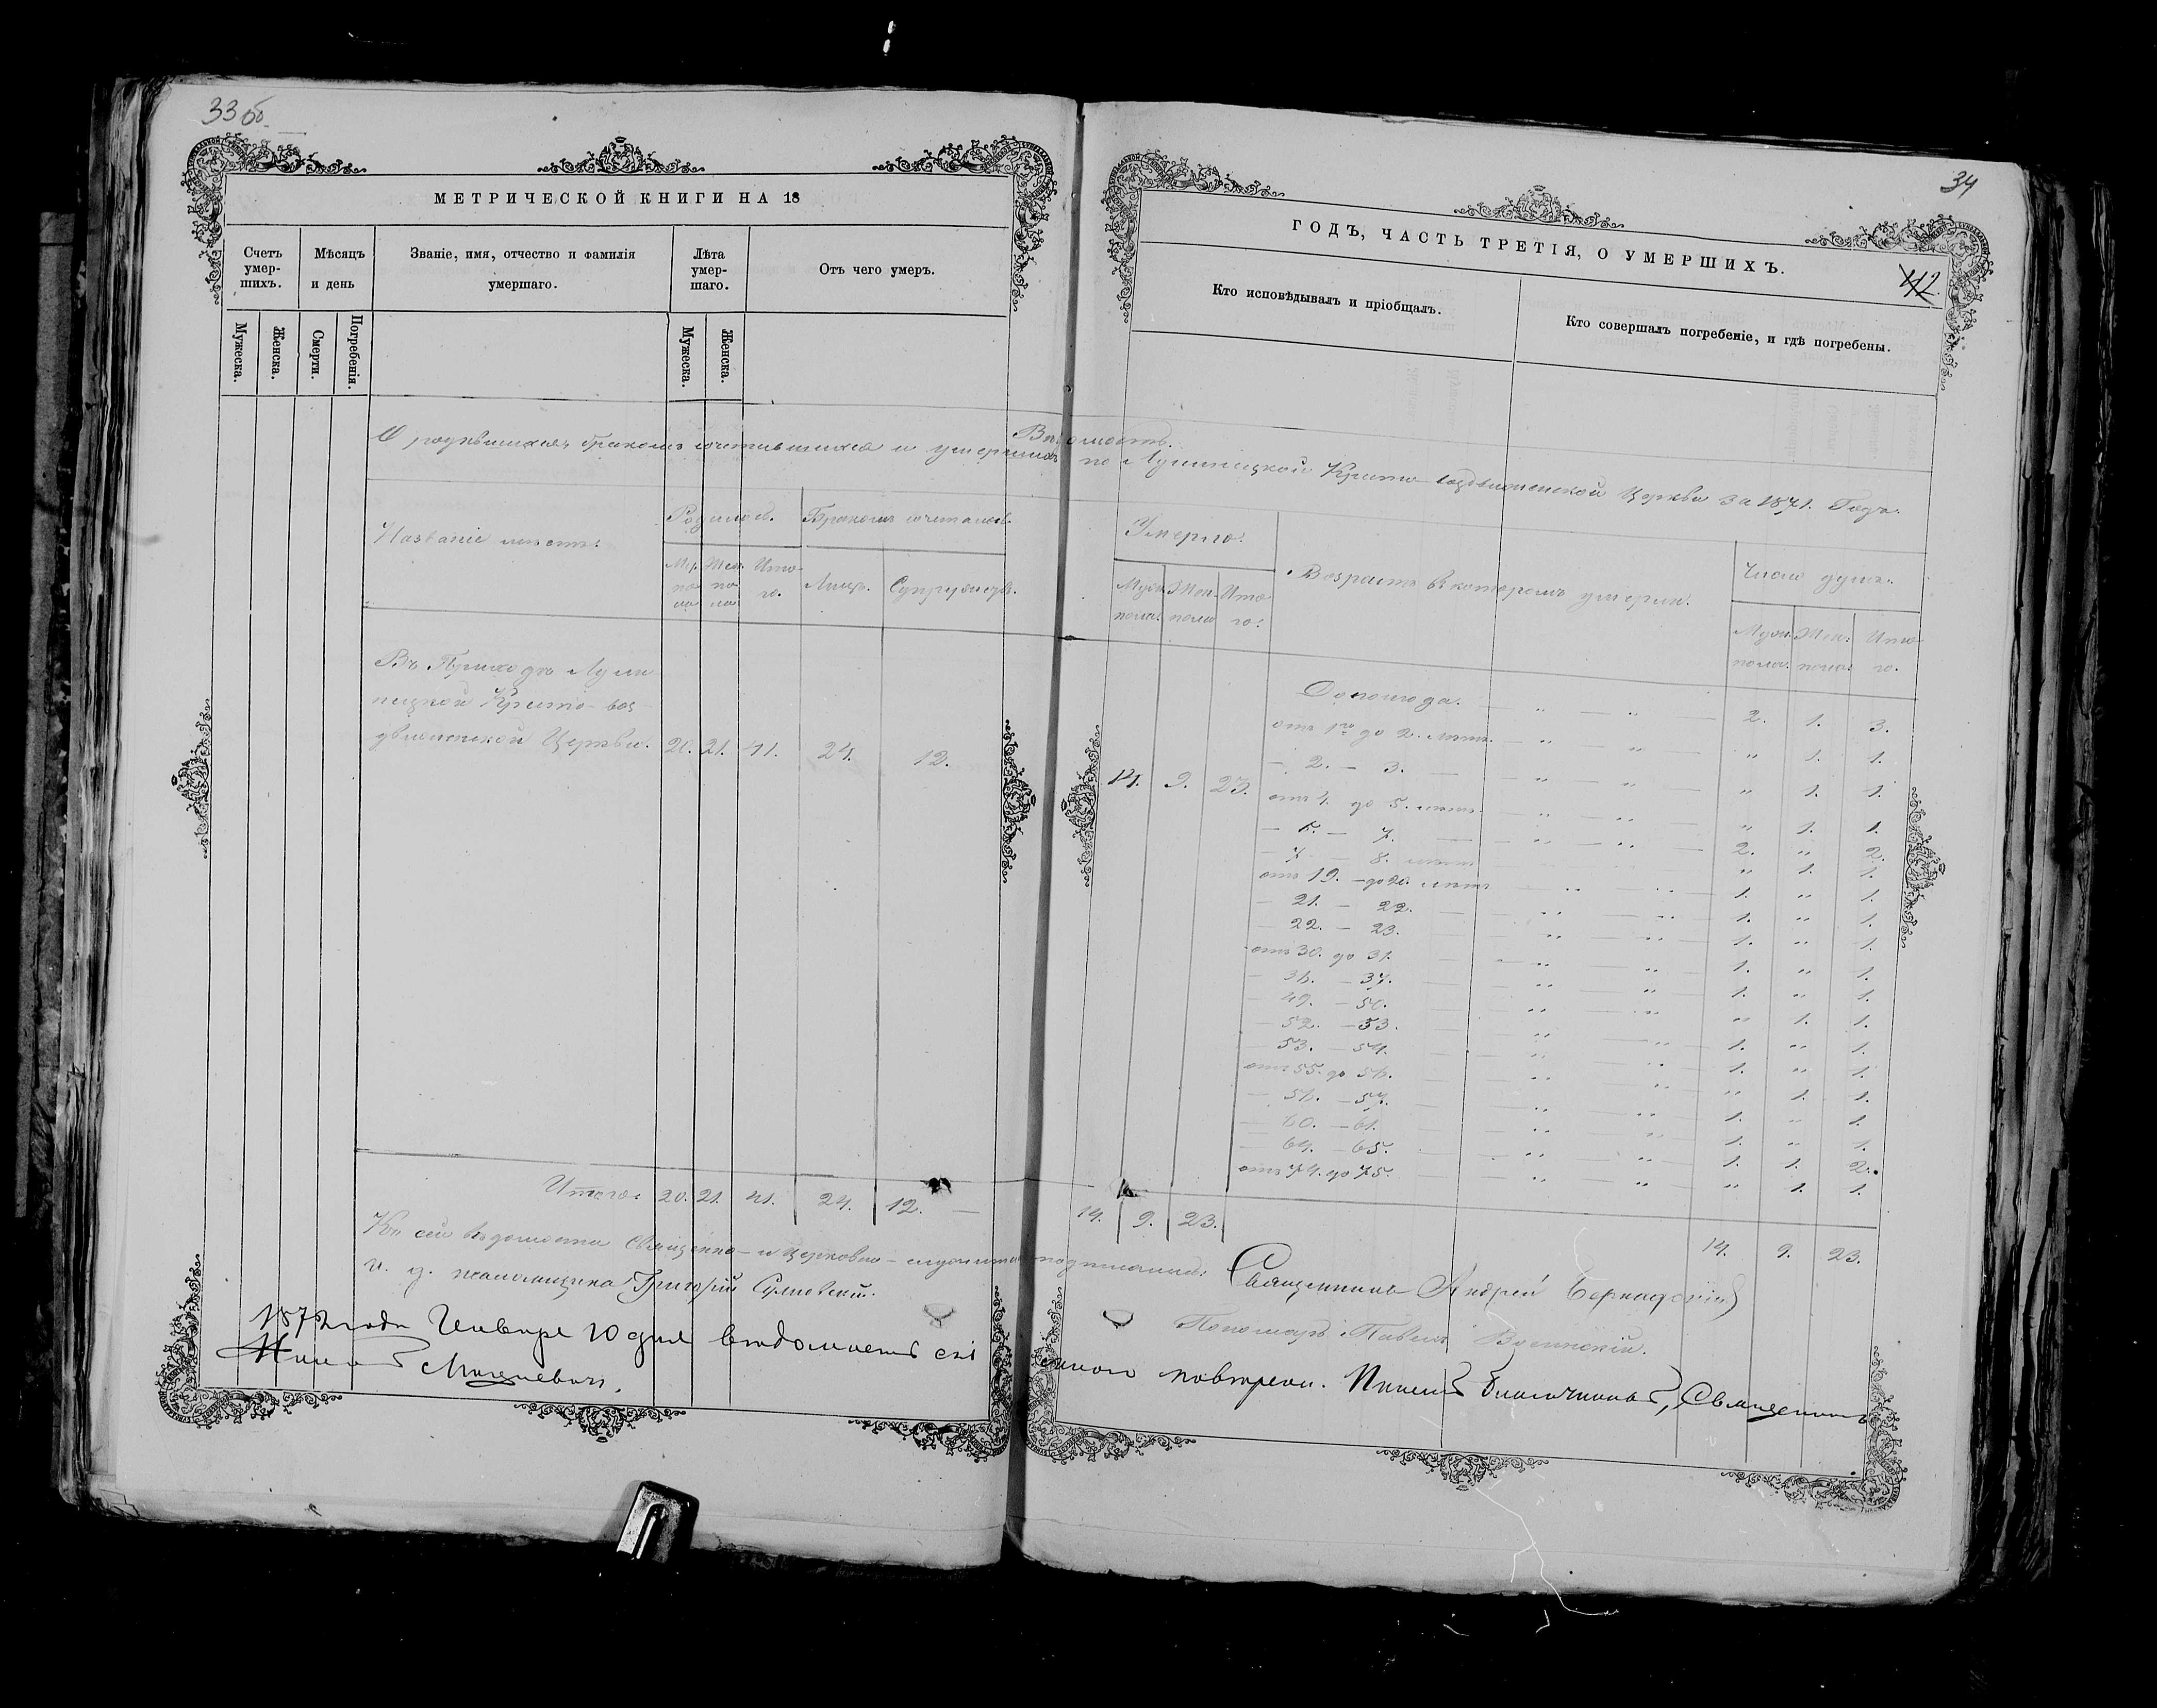 33 об.
МЕТРИЧЕСКОЙ КНИГИ НА 18
Счетъ умер- шихъ.
Мѣсяцъ и день
Званіе, имя, отчество и фамилія умершаго.
Лѣта умер- шаго.
Отъ чего умеръ.
Мужеска.
Женска.
Смерти.
Погребенія.
Мужеска.
Женска.
34
ГОДЪ, ЧАСТЬ ТРЕТІЯ, О УМЕРШИХЪ.
112.
Кто исповѣдывалъ и пріобщалъ.
Кто совершалъ погребеніе, и гдѣ погребены.
Вѣдомость.
О родившихся, бракомъ сочетавшихся и умершихъ по Кресто-воздвиженской Церкви за 1871. Годъ.
Названіе мѣстъ.
Родилось.
Бракомъ сочеталось.
Муж. по- ла
Жен. по- ла
Ито- го.
Лицъ.
Супружествъ.
Умерло:
Муж. пола:
Жен. пола
Ито го:
Возрастъ въ которомъ умерли.
Число душъ:
Муж. пола.
Жен. пола.
Ито- го.
Въ Приходѣ
Кресто-воз-
движенской Церкви. 20. 21. 41. 24. 12.
14. 9. 23.
До полгода. — „ — „ — 2. 1. 3.
отъ 1го до 2. лѣтъ. — „ „ — „ 1. 1.
— 2. — 3. — — „ — „ — „ 1. 1.
отъ 4. до 5. лѣтъ. „ — „ — „ 1. 1.
— 6. — 7. — — „ — „ — 2. „ 2.
— 7 — 8. лѣтъ „ 1. 1.
отъ 19. — до 20. лѣтъ „ „ 1. „ 1.
— 21. — 22. — — „ — „ — 1. „ 1.
— 22. — 23. „ „ 1. „ 1.
отъ 30. до 31. — — „ „ 1. „ 1.
— 36. — 37. „ „ 1. „ 1.
— 49. — 50. „ „ „ 1. 1.
— 52. — 53. „ „ 1. „ 1.
— 53. — 54. „ „ 1. „ 1.
отъ 55. до 56. „ „ „ 1. 1.
— 56. — 57. „ „ 1. „ 1.
— 60. — 61. „ „ 1. „ 1.
— 64. — 65. „ „ 1. 1. 2.
отъ 74. до 75. „ „ „ 1. 1.
Итого: 20. 21. 41. 24. 12. —
14. 9. 23.
14. 9. 23.
Къ сей вѣдомости Священно- и церковно-служители подписались: Священникъ Андрей
и. д. псаломщика Григорій
Пономарь Павелъ
1872 года Генваря 10 дня вѣдомость сія мною повѣрена. благочинный, Священникъ